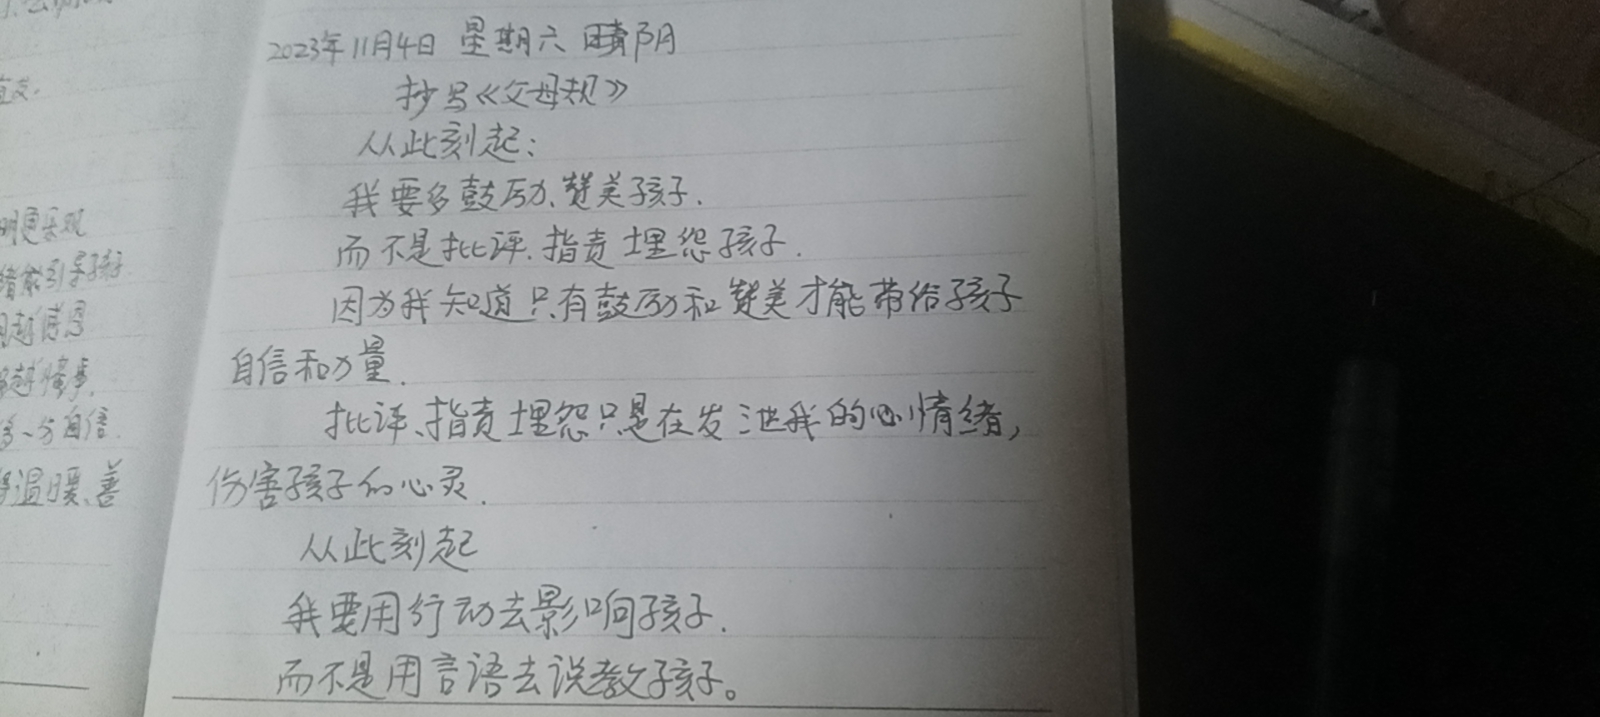 2023年11月4日 星期六 晴阴
抄写《父母规》
从此刻起:
我要多鼓励、赞美孩子.
而不是批评.指责埋怨孩子.
因为我知道只有鼓励和赞美才能带给孩子
自信和力量.
批评、指责埋怨只是在发泄我的心情绪,
伤害孩子的心灵.
从此刻起
我要用行动去影响孩子.
而不是用言语去说教孩子。
温暖、善